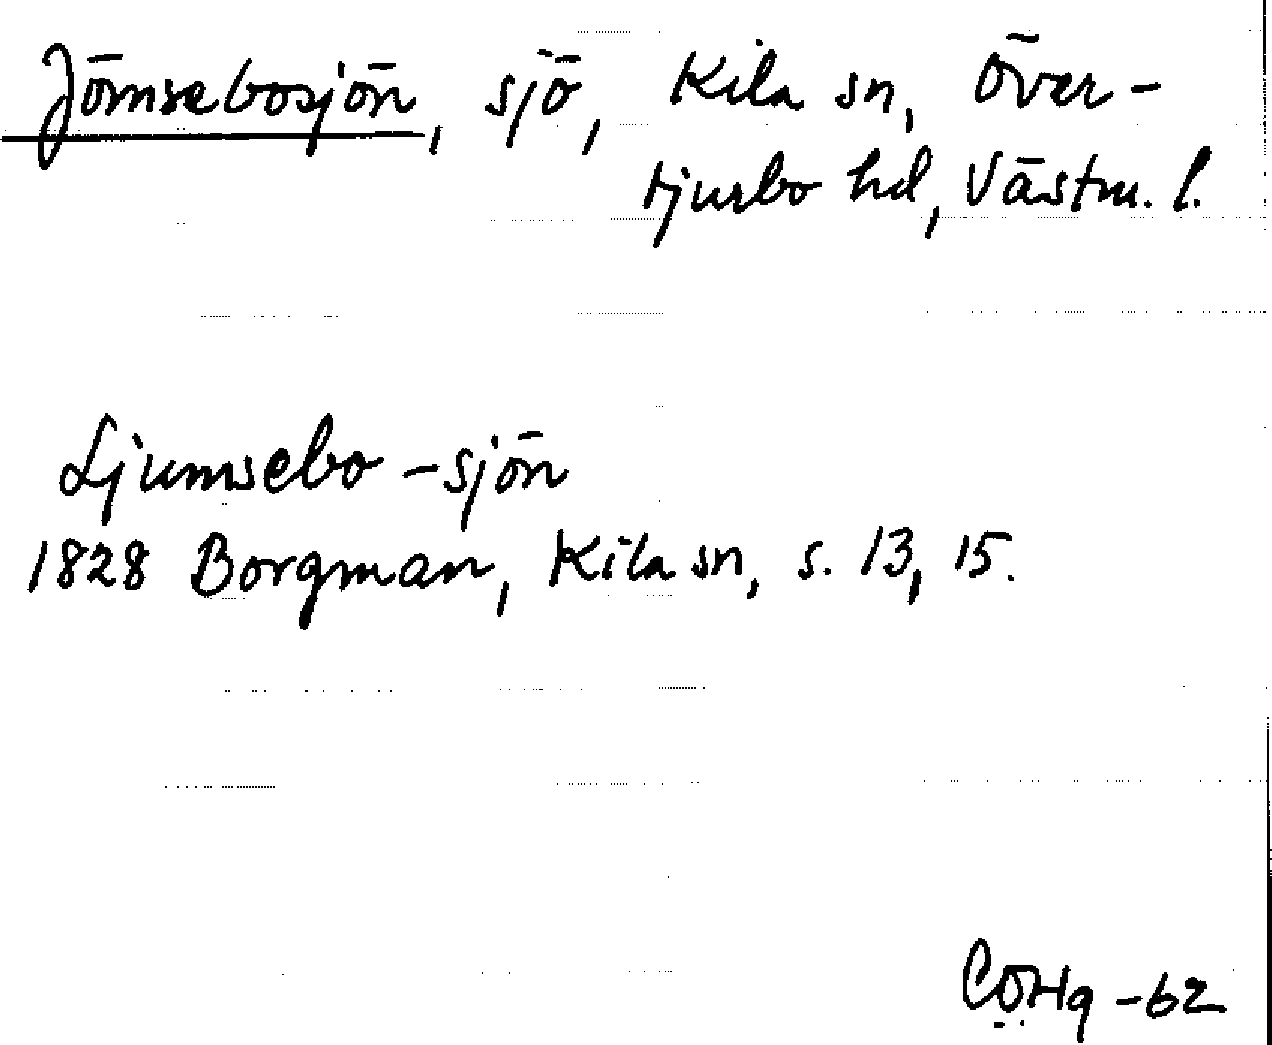 Jömsebosjön, sjö, Kila sn, Över-
tjurbo hd, Västm. l.
Ljumsebo-sjön
1828 Borgman, Kila sn, s. 13, 15.
COHg -62